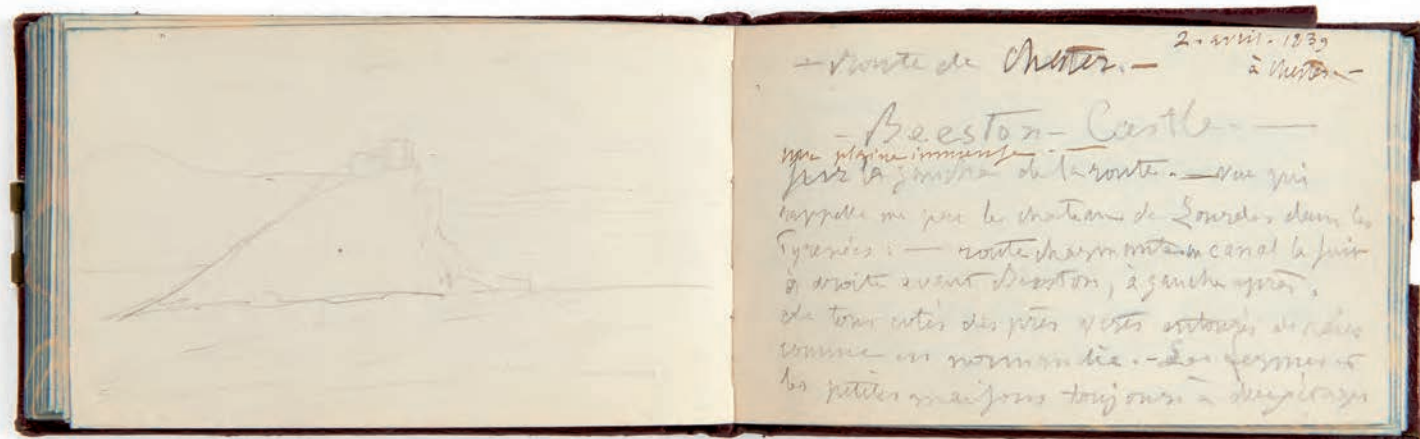 2. avril. 1839
— Route de Chester. — à Chester —
— Beeston — Castle. —
une plaine immense. —
sur la gauche de la route. — vue qui
rappelle un peu le chateau de Lourdes dans les
Pyrénées : — route charmante un canal la suit
à droite avant Beeston, à gauche après.
de tous cotés des près verts entourés de haies
comme en normandie. — Les fermes et
les petites maisons toujours à deux étages